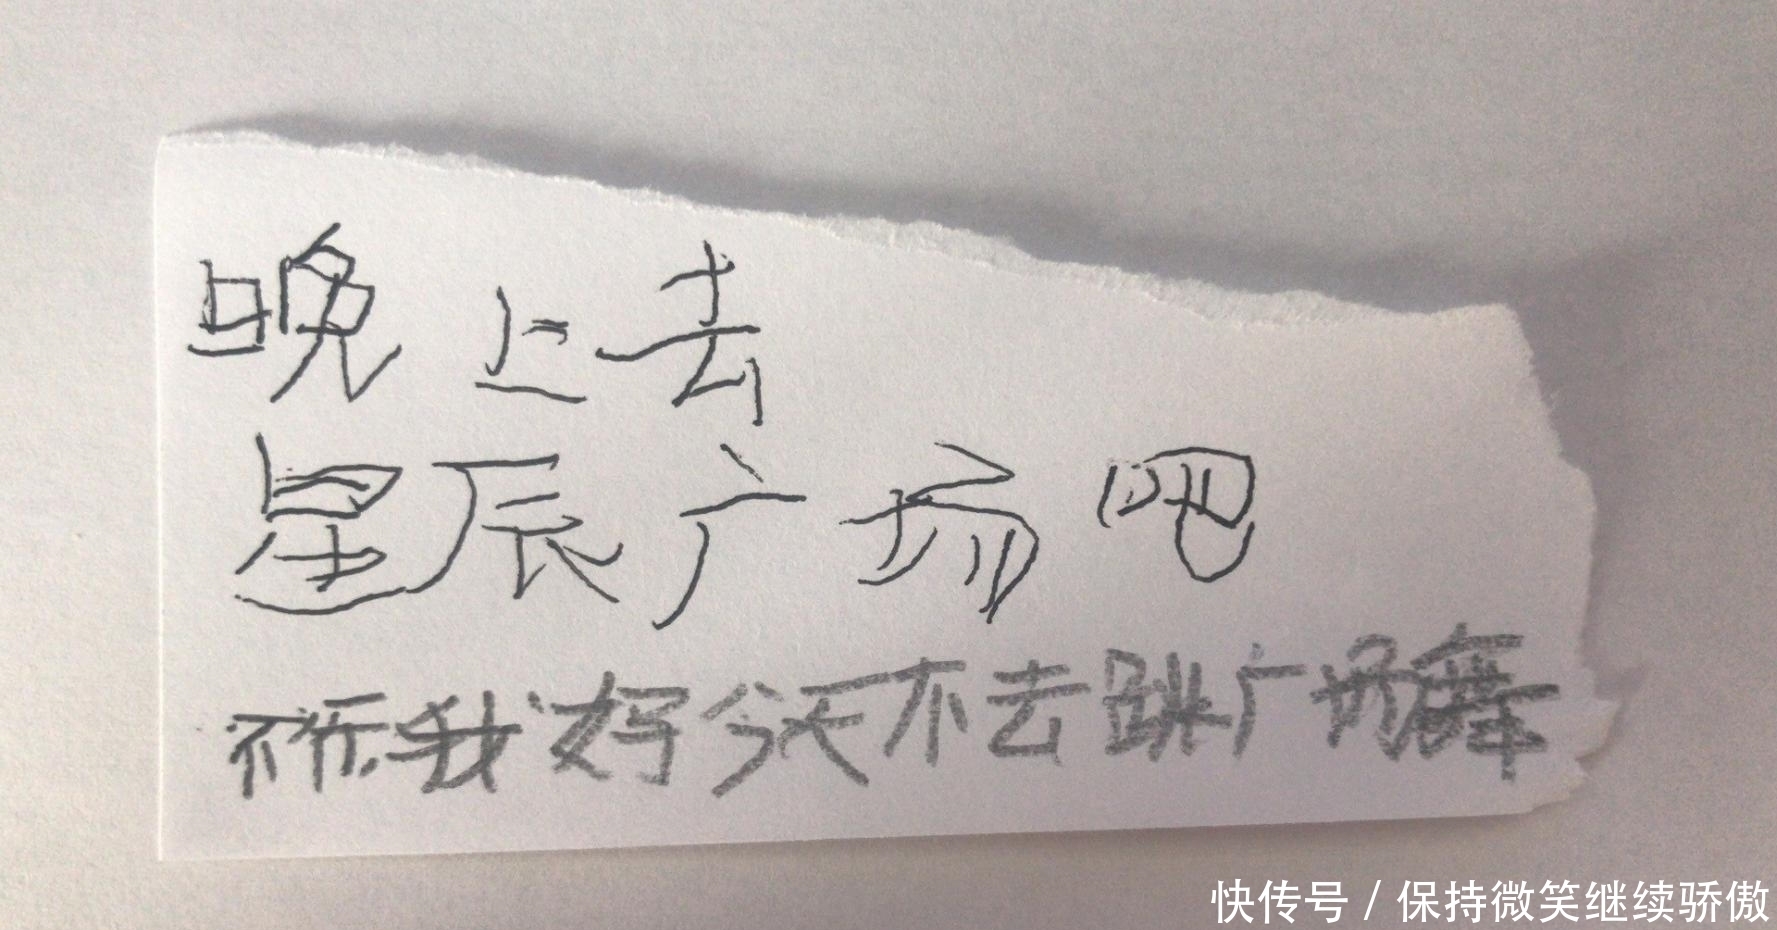 晚上去
星辰广场吧
不行,我妈今天不去跳广场舞
快传号 / 保持微笑继续骄傲